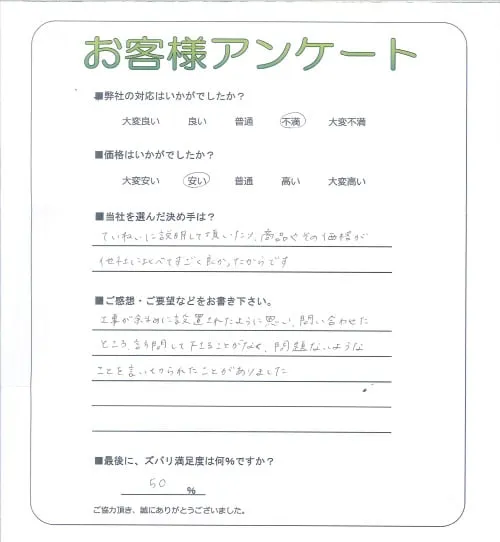 お客様アンケート
■弊社の対応はいかがでしたか？
大変良い 良い 普通 不満 大変不満
■価格はいかがでしたか？
大変安い 安い 普通 高い 大変高い
■当社を選んだ決め手は？
ていねいに説明して頂いたり、商品やその価格が
他社に比べてすごく良かったからです
■ご感想・ご要望などをお書き下さい。
工事が斜めに設置されたように思い、問い合わせた
ところ、訪問して下さることがなく、問題ないような
ことを言いきられたことがありました
■最後に、ズバリ満足度は何％ですか？
50 ％
ご協力頂き、誠にありがとうございました。